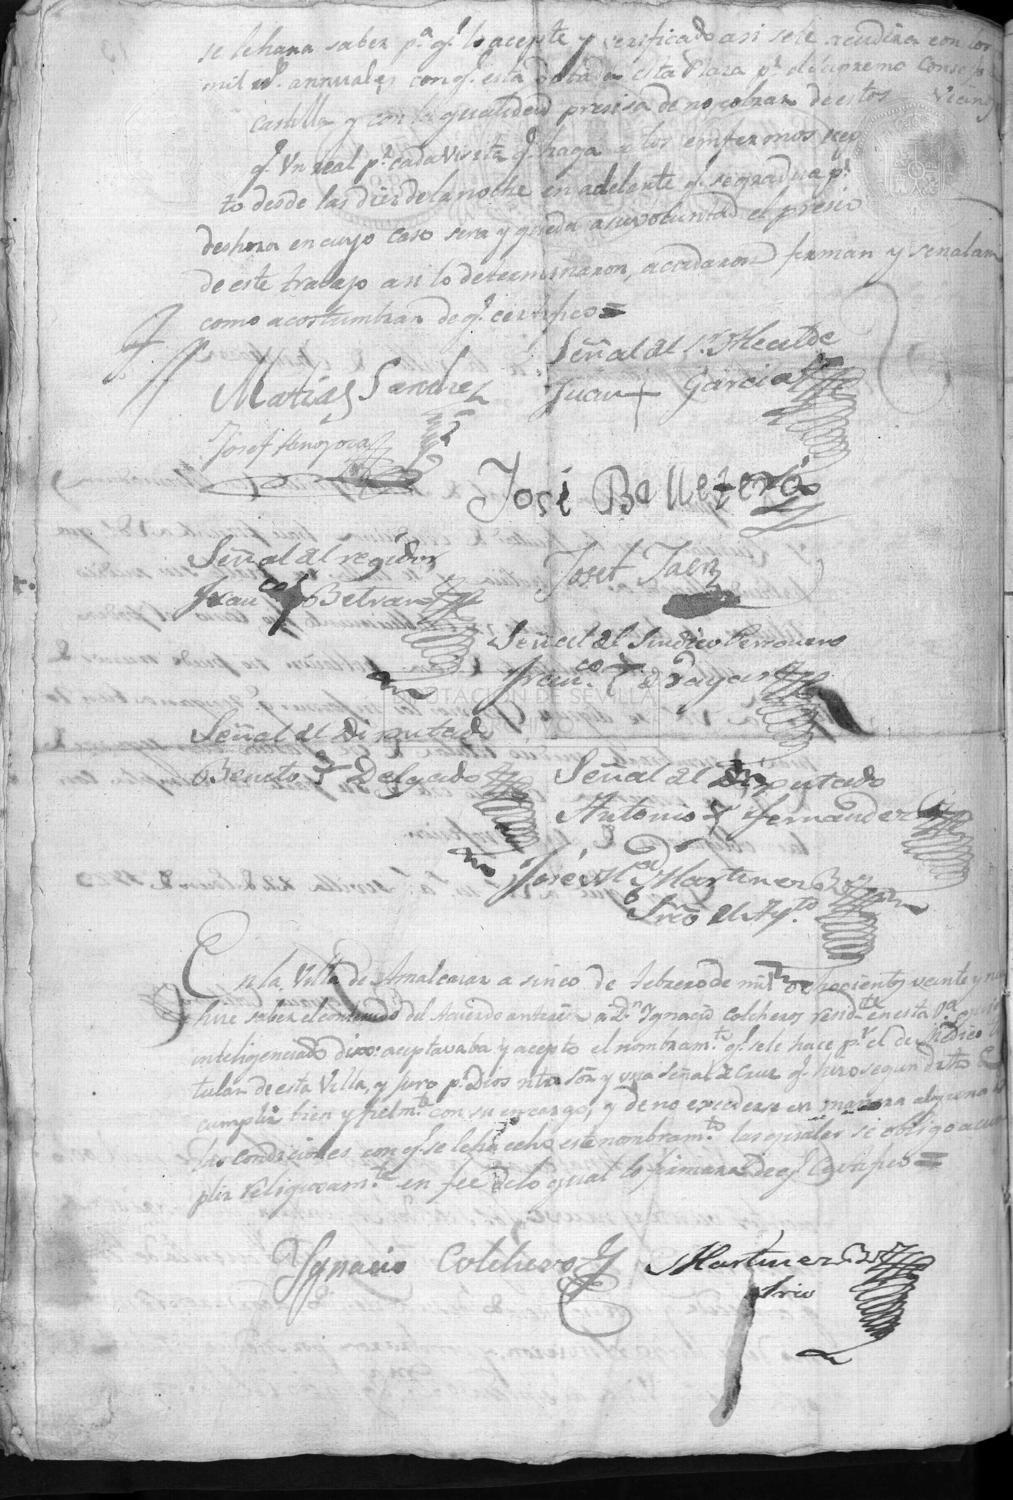 se le hara saber p.ª q.e lo acepte y verificado asi se le acudira con los
mil r.s annuales con q.e esta dotada esta Plaza p.r el Supremo Consejo
Castilla y con la qualidad presisa de no cobrar de estos Vecinos
q.e Un real p.r cada Visita q.e haga a los enfermos
to desde las diez de la noche en adelante q.e se gradua p.r
deshora en cuyo caso sera y queda a su voluntad el presio
de este trabajo asi lo determinaron, acordaron firman y señalan
como acostumbran de q.e certifico=
Señal del S.r Alcalde
Juan + Garcia
Matias Sanchez
Josef
José Ballesteros
Señal del regidor
Fran.co + Beltran
Josef Jaen
Señal del Sindico Personero
Fran.co + Dayas
DIPUTACIÓN DE SEVILLA
Señal del Diputado
Benito + Delgado
Señal del Diputado
Antonio + Fernandez
José M.a Martinez
Srio del Ay.to
En la Villa de Amalcazar a sinco de Febrero de mil ochocientos veinte y
hise saber el contenido del Acuerdo anterior a D.n Ignacio Colchero resid.te en esta V.ª quien
inteligenciado dixo: aceptavaba y acepto el nombram.to q.e se le hace p.r el de Medico
tular de esta Villa, y juro p.r Dios ntro Sõr y una señal de Cruz q.e hizo segun drõ
cumplir bien y fielm.te con su encargo, y de no excederse en manera alguna
las condiciones con q.e se le ha echo este nombram.to las quales se obligo a cum
plir religiosam.te en fee de lo qual lo firmara de q.e Certifico=
Ygnacio Colchero
Martinez
Srio